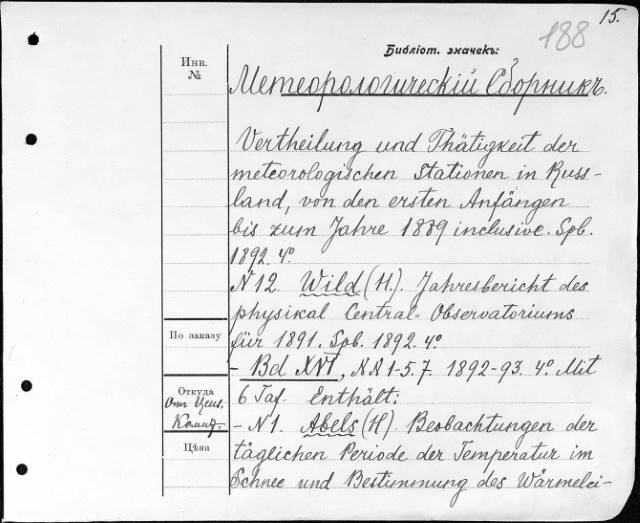 15.
188
Библіот. значекъ:
Инв.
№
Метеорологическій Сборникъ.
Vertheilung und Thätigkeit der
meteorologischen Stationen in Russ-
land, von den ersten Anfängen
bis zum Jahre 1889 inclusive. Spb.
1892. 4°
N 12. Wild (H). Jahresbericht des
physikal Central-Observatoriums
По заказу
für 1891. Spb. 1892. 4°
- Bd XVI, NN 1-5. 7. 1892-93. 4°. Mit
Откуда
6 Taf. Enthält:
От Ценз.
Комит.
- N 1. Abels (H). Beobachtungen der
Цѣна
täglichen Periode der Temperatur im
Schnee und Bestimmung des Wärmelei-